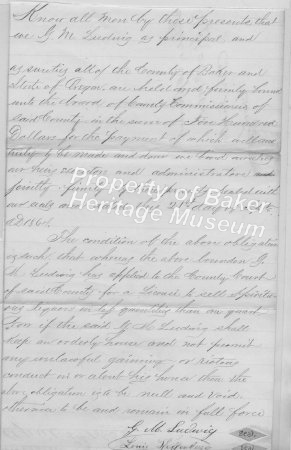 Know all men by these presents, that
we G. M. Ludwig as principal and
as sureties all of the County of Baker and
State of Oregon, are held and firmly bound
unto the board of County Commissioners of
said County in the sum of Five Hundred
Dollars for the payment of which well and
truly to be made and done we bind ourselves
our heirs executors and administrators
jointly firmly by these presents
our seals and day of
AD 1864.
The condition of the above obligation
is such, that whereas the above bounden G.
M. Ludwig has applied to the County Court
of said County for a License to sell Spiritu-
ous liquors in less quantities than one quart
Now if the said G. M. Ludwig shall
keep an orderly house and not permit
any unlawful gaming or riotous
conduct in or about his house then the
above obligation is to be null and void
otherwise to be and remain in full force
G. M. Ludwig
Louis
Property of Baker
Heritage Museum